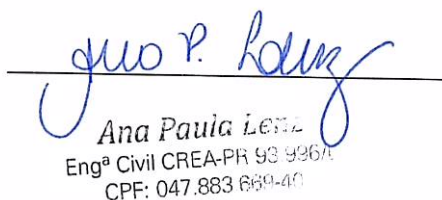 Ana P. Lenz
Ana Paula Lenz
Engª Civil CREA-PR 93.996/
CPF: 047.883 669-40